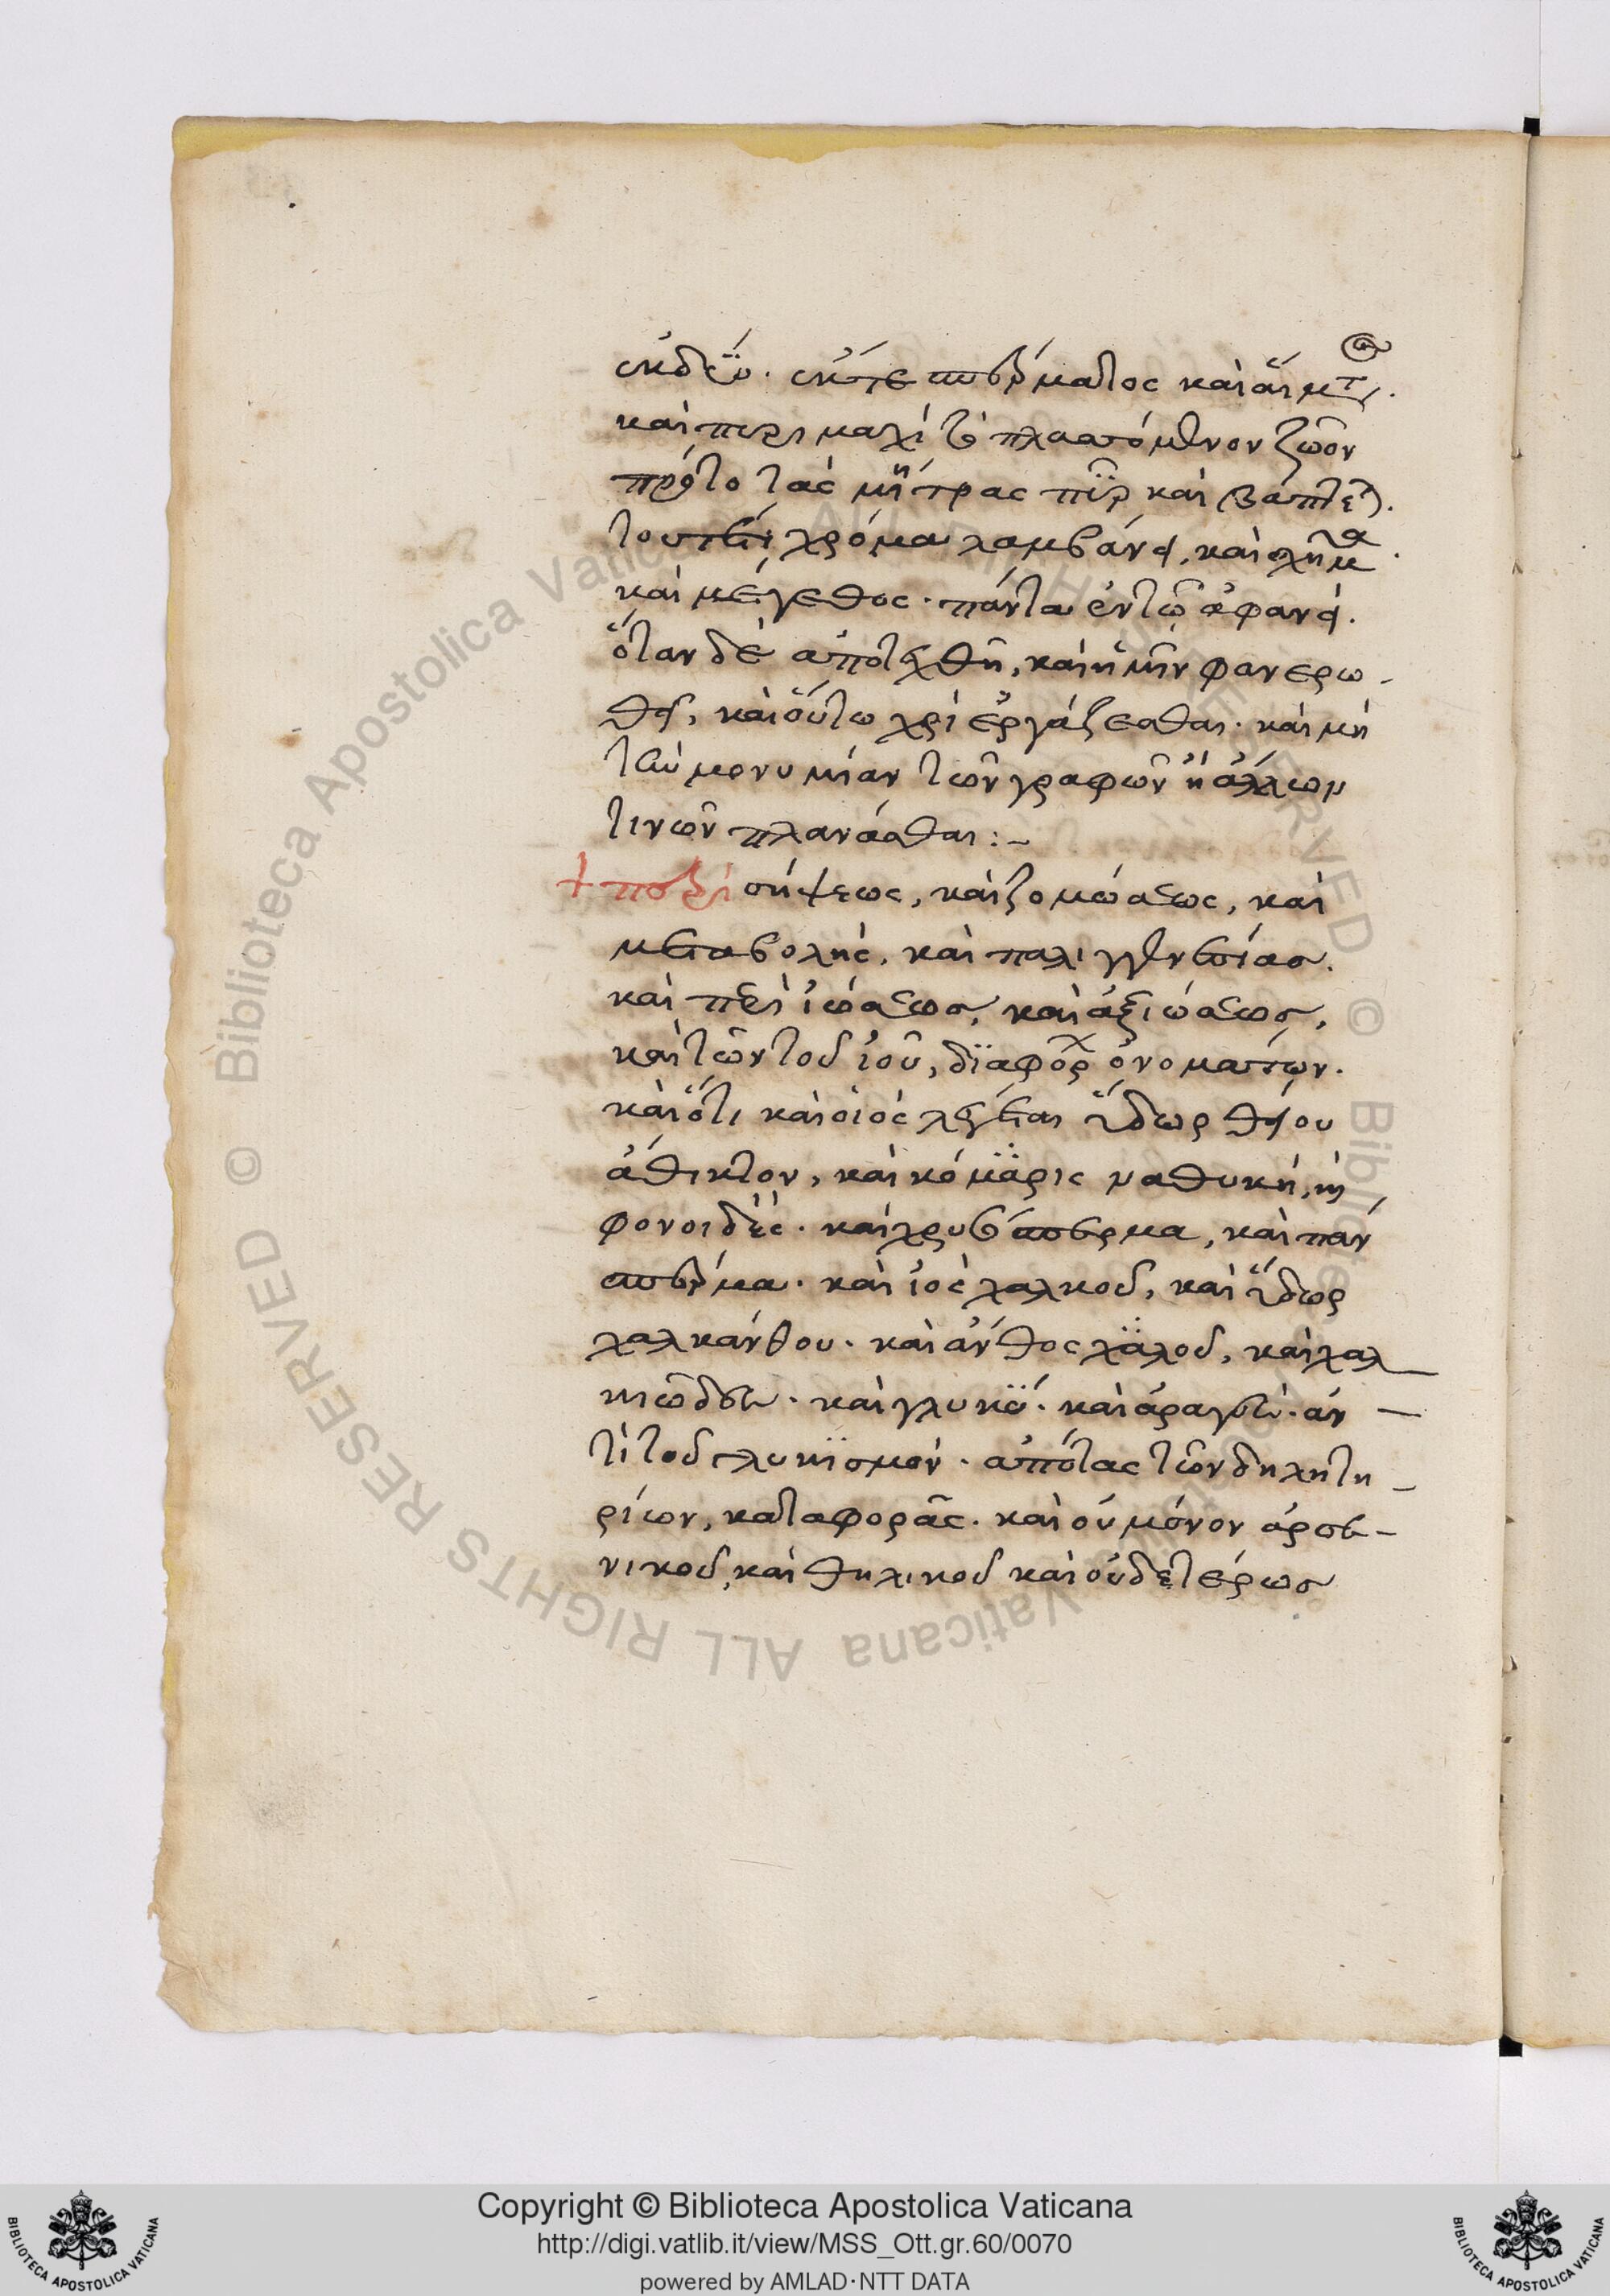 ἐκ δύο. ἔκ τε σπέρματος καὶ αἵματος.
καὶ πυρι μαχί τὸ πλαττόμενον ζῶον
πρὸς τὸ τὰς μήτρας πῦρ καὶ βάπτεται.
τουτέστι χρόμα λαμβάνει, καὶ σχῆμα.
καὶ μέγεθος. πάντα ἐν τῶ ἀφανεῖ.
ὅταν δὲ ἀποτεχθῆ, καὶ ἡμῖν φανερω-
θεῖ, καὶ οὕτω χρὶ ἐργάζεσθαι. καὶ μὴ
τὴν μονυμίαν τῶν γραφῶν ἢ ἄλλων
τινῶν πλανάσθαι:-
+ περὶ σήψεως, καὶ ζομώσεως, καὶ
μεταβολῆς, καὶ παλιγγενεσίας.
καὶ περὶ ἰώσεως, καὶ ἀξιώσεως,
καὶ τῶν τοῦ ἰοῦ, διαφόρων ὀνομάτων.
καὶ ὅτι καὶ οἰὸς λέγεται ὕδωρ θείου
ἄθικτον, καὶ κόμαρις
φονοιδὲς. καὶ χρυσόσπερμα, καὶ πᾶν
σπέρμα. καὶ ἰὸς χαλκοῦ, καὶ ὕδωρ
χαλκάνθου. καὶ ἄνθος χαλοῦ, καὶ χαλ
κιῶδες. καὶ γλυκύ. καὶ ἀραγὲς. ἀν-
τὶ τοῦ γλυκισμὸν. ἀπὸ τὰς τῶν δηλητη-
ρίων, καταφορᾶς. καὶ οὐ μόνον ἀρσε-
νικοῦ, καὶ θηλικοῦ καὶ οὐδετέρως
Copyright © Biblioteca Apostolica Vaticana
http://digi.vatlib.it/view/MSS_Ott.gr.60/0070
powered by AMLAD·NTT DATA
BIBLIOTECA APOSTOLICA VATICANA
BIBLIOTECA APOSTOLICA VATICANA
© Biblioteca Apostolica Vaticana ALL RIGHTS RESERVED © Biblioteca Apostolica Vaticana ALL RIGHTS RESERVED